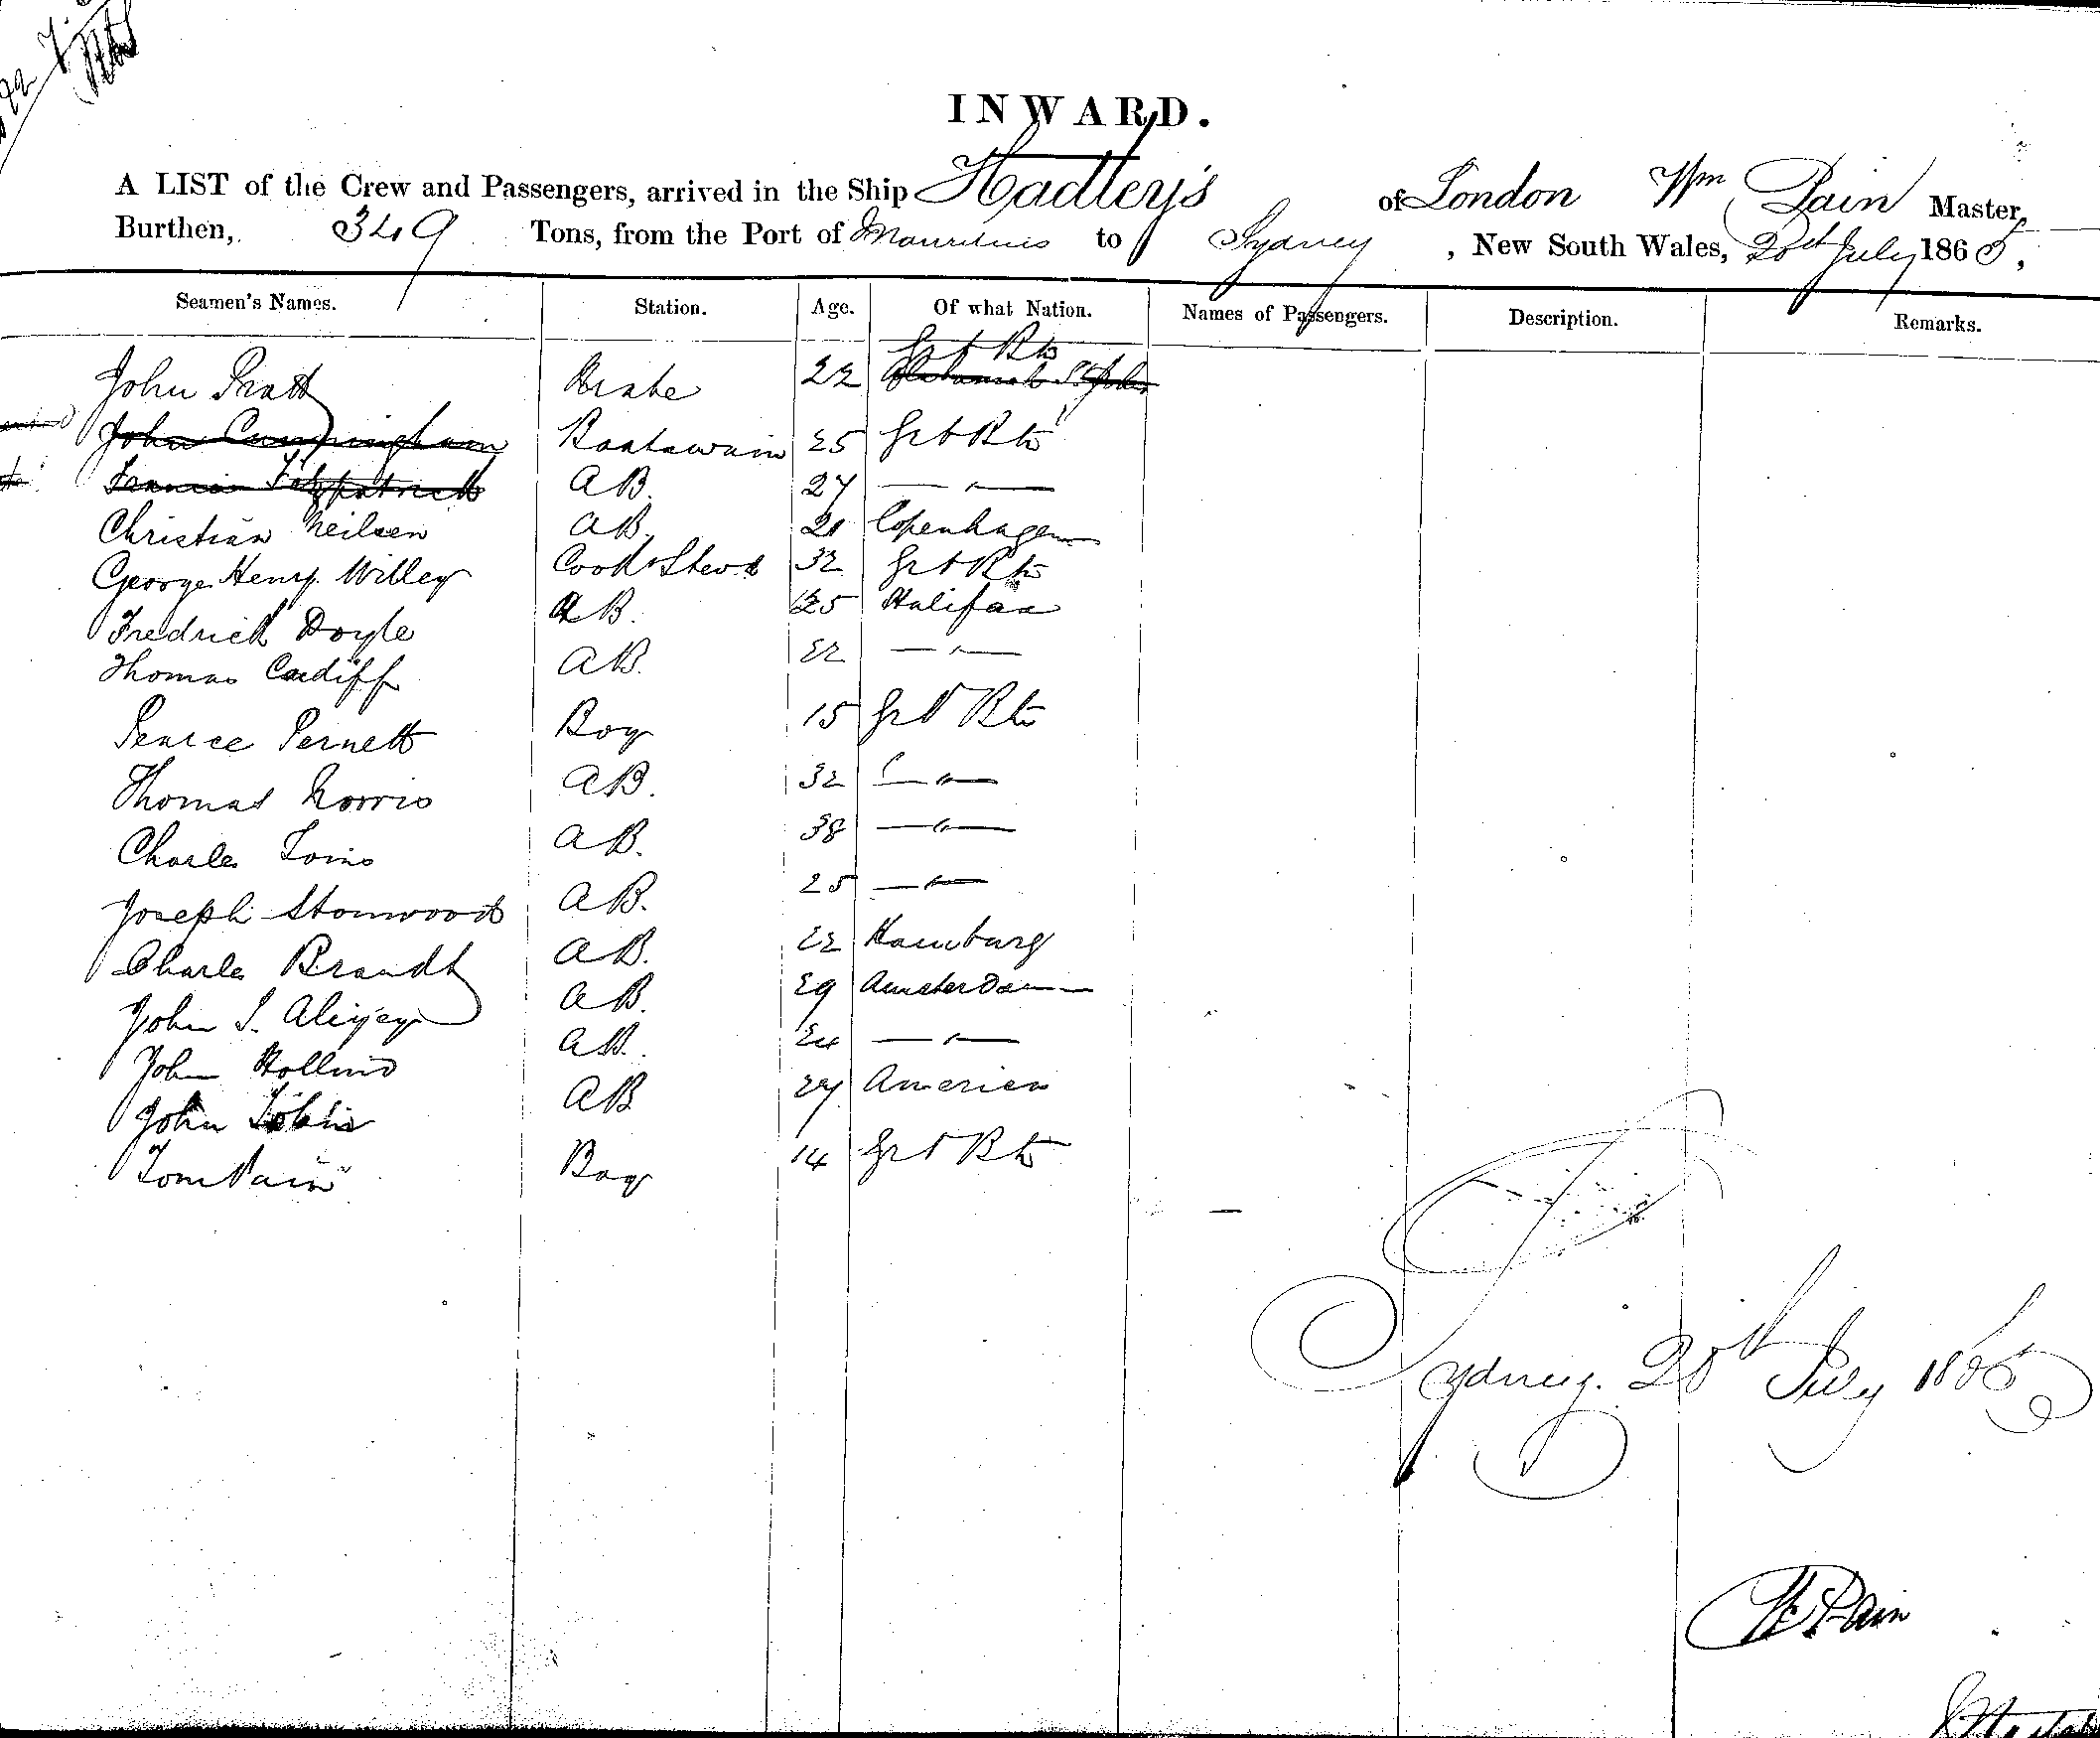 INWARD.
A LIST of the Crew and Passengers, arrived in the Ship Hadley's of London Wm Pain Master,
Burthen, 349 Tons, from the Port of Mauritius to Sydney, New South Wales, 20th July 1865,
Seamen's Names. Station. Age. Of what Nation. Names of Passengers. Description. Remarks.
Grt Btn
John Pratt Mate 22
John Cunningham Boatswain 25 Grt Btn
Francis Fitzpatrick AB. 27 — " —
Christian Neilsen AB. 21 Copenhagen
George Henry Willey Cook & Stewd 32 Grt Btn
Fredrick Doyle AB. 25 Halifax
Thomas Cardiff AB. 22 — " —
Pearce Pernett Boy 15 Grt Btn
Thomas Norris AB. 32 — " —
Charles AB. 38 — " —
Joseph Stonwood AB. 25 — " —
Charles Brandt AB. 22 Hamburg
John S. AB. 29 Amsterdam
John Hollins AB. 24 — " —
John Tobin AB 27 America
Tom Pain Boy 14 Grt Btn
Sydney. 20th July 1865
W Pain